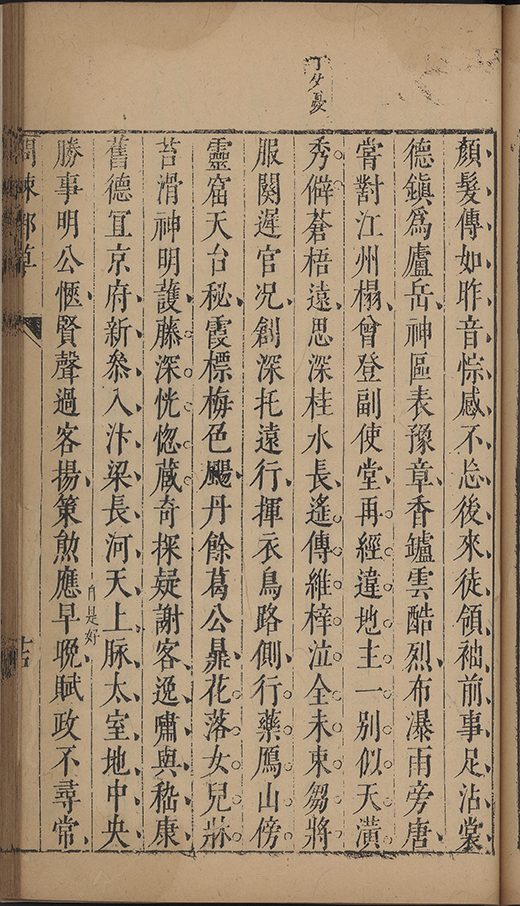 丁父憂
顏髮傳如昨音悰感不忘後來徒領袖前事足沾裳
德鎮爲廬岳神區表豫章香鑪雲酷烈布瀑雨旁唐
嘗對江州榻曾登副使堂再經違地主一别似天潢
秀僻蒼梧遠思深桂水長遙傳維梓泣全未束芻將
服闋遲官况創深托遠行揮衣鳥路側行藥鴈山傍
靈窟天台秘霞標梅色颺丹餘葛公鼎花落女兒牀
苔滑神明護藤深恍惚蔵奇探疑謝客逸嘯與嵇康
舊德冝京府新叅入汴梁長河天上脉太室地中央
自是好
勝事明公愜賢聲過客揚策勲應早晩賦政不尋常
問棘郵草